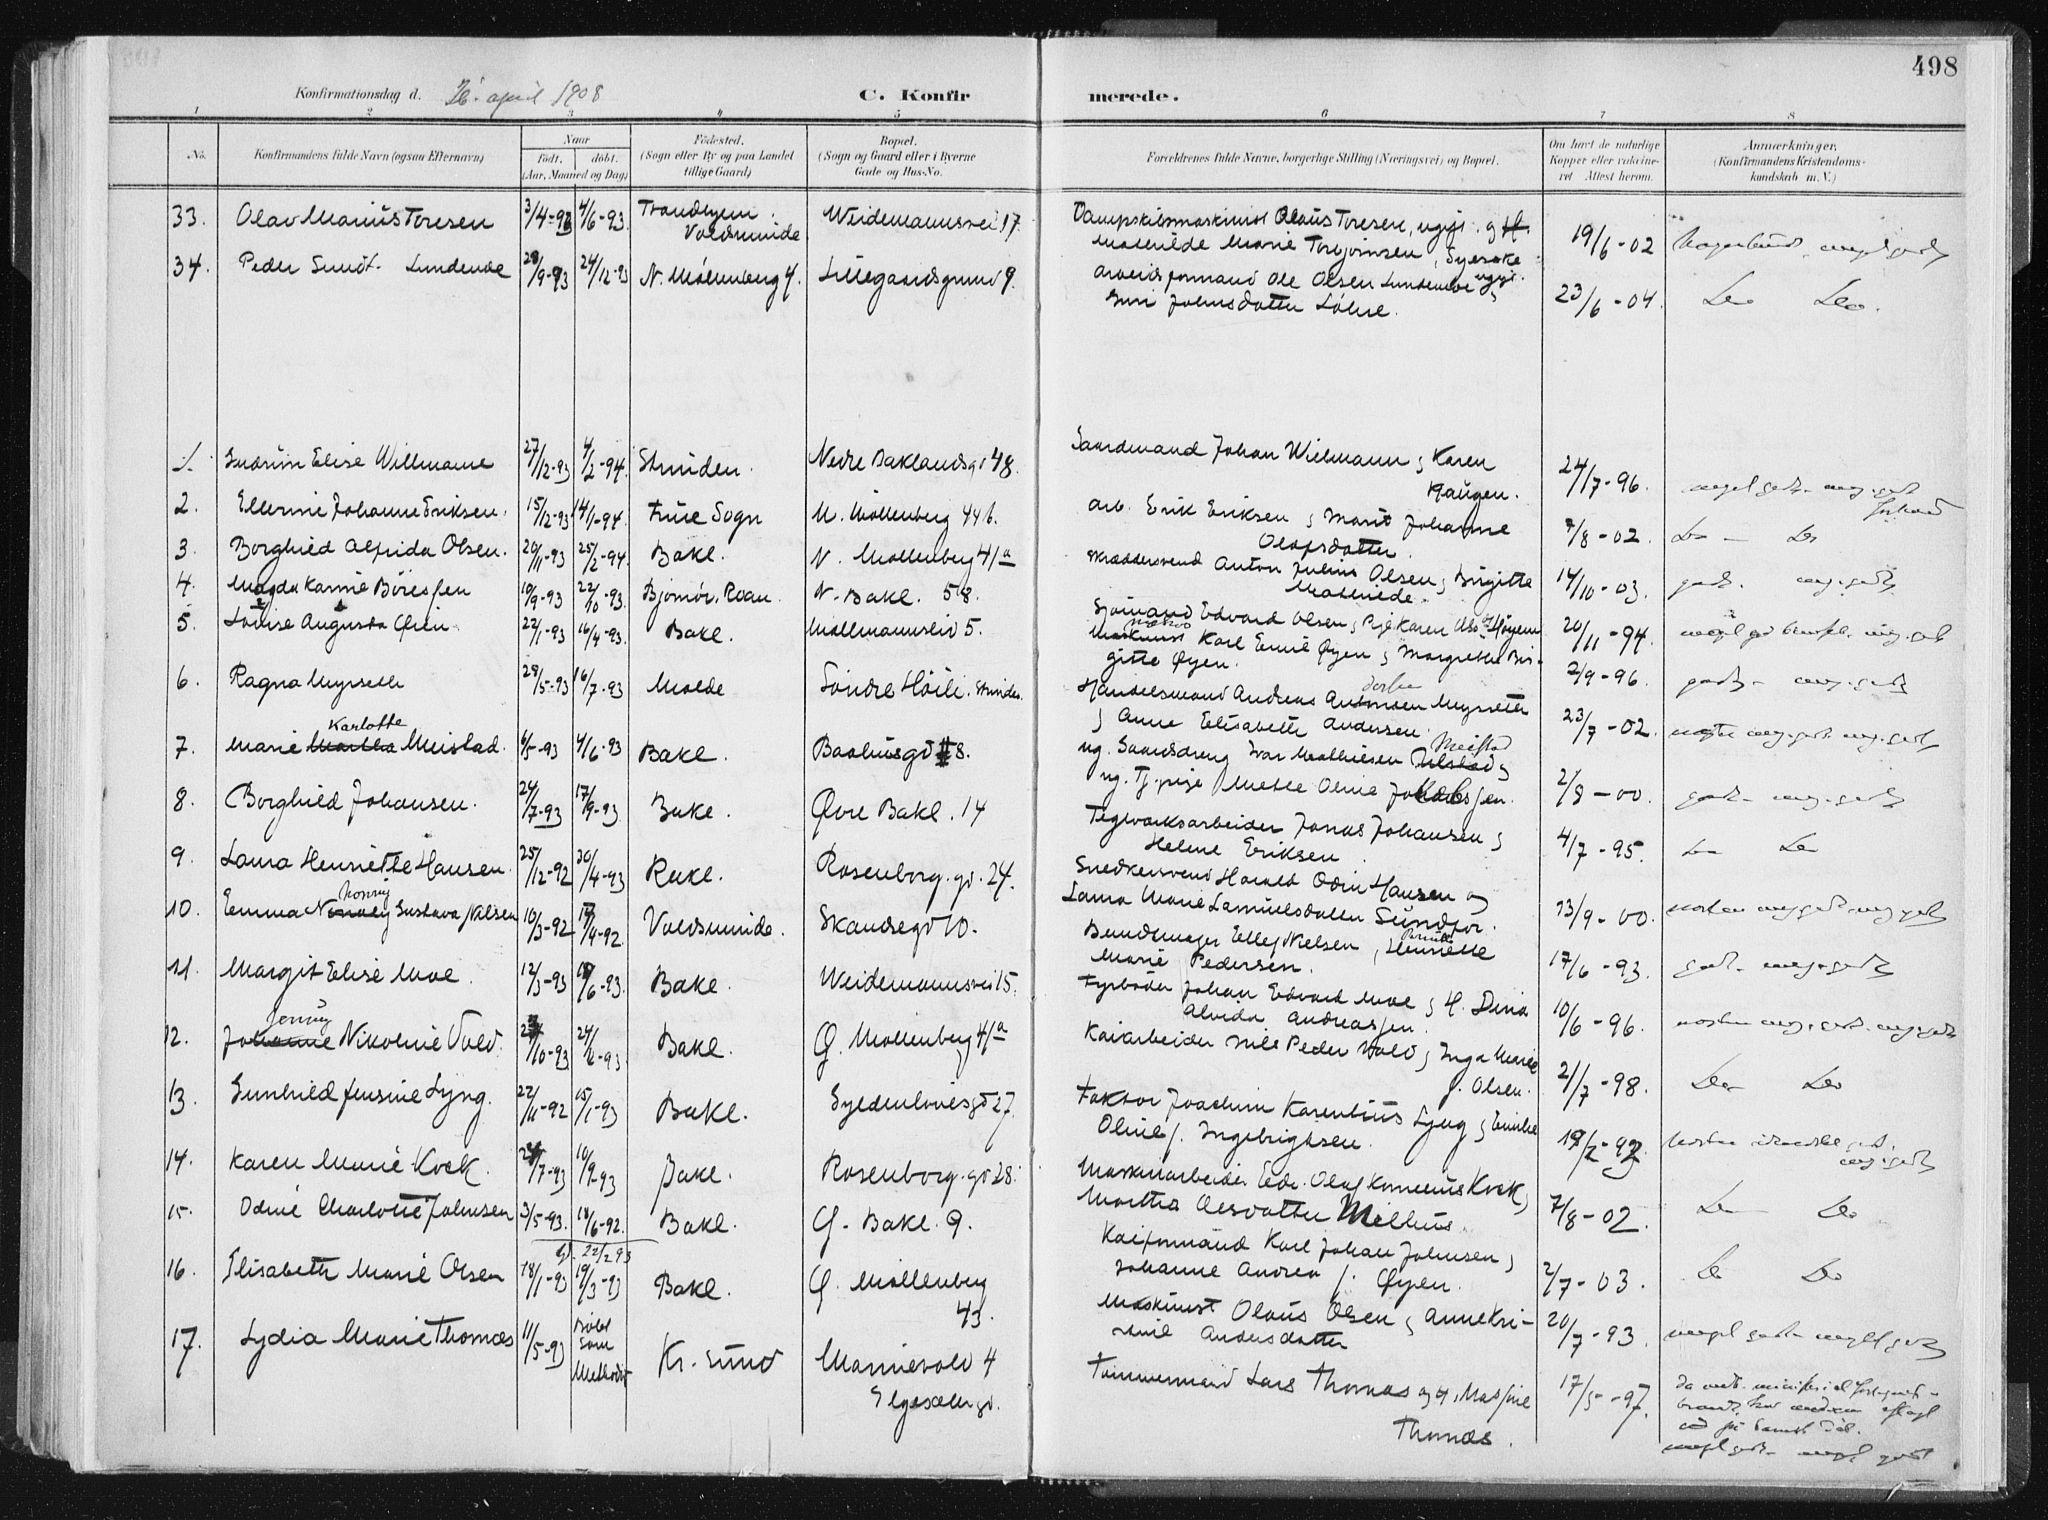 498
Konfirmationsdag d. 26. april 1908
C. Konfirmerede.
1 2 3 4 5 6 7 8
No.
Konfirmandens fulde Navn (ogsaa Efternavn)
Naar
født. døbt.
(Aar, Maaned og Dag)
Fødested.
(Sogn eller By og paa Landet
tillige Gaard)
Bopæl.
(Sogn og Gaard eller i Byerne
Gade og Hus-No.
Forældrenes fulde Navne, borgerlige Stilling (Næringsvei) og Bopæl.
Om havt de naturlige
Kopper eller vaccine-
ret Attest herom.
Anmærkninger.
(Konfirmandens Kristendoms-
kundskab m. V.)
33. Olav Marius Toresen 3/4-93 4/6-93 Trondhjem. Weidemannsvei 17
Voldsminde
Dampskibsmaskinist Olaus Toresen, ugift og
Mathilde Marie Torgjørnsen, Syerske 19/6-02
34. Peder Smidt Lundemoe 28/9-93 24/12-93 N. Møllenberg 4. Lillegaardsgrund 9.
Arbeidsformand Ole Olsen Lundemoe ugift
Guri Johnsdatter Løhre. 23/6-04. Do Do.
1. Gudrun Elise Willmann 27/12-93 4/2-94. Strinden. Nedre Baklandsg. 48.
Gaardmand Johan Willmann & Karen
Haugen. 24/7-96. meget godt - meg. godt
forhold
2. Ellevine Johanne Eriksen. 15/12-93 14/1-94. Frue Sogn N. Møllenberg 44 b.
Arb. Erik Eriksen & Marit Johanne
Olafsdatter. 7/8-02. Do - Do
3. Borghild Alfrida Olsen. 20/11-93 25/2-94. Bakl. N. Møllenberg 41 a
Skræddersvend Anton Julius Olsen & Birgitte
Mathilde. 14/10-03. godt. meg. godt
4. Magda Karine Børesen 10/9-93 22/10-93. Bjørnør, Roan. N. Bakl. 58.
Sjømand Edvard Olsen & Pige Karen Høyem 20/11-94.
5. Lovise Augusta Øien 22/1-93 16/4-93. Bakl. Mellemannsvei 5.
Maskinist Karl Emil Øyen & Margrethe Bir-
gitte Øyen. 2/9-96. godt - meg. godt
6. Ragna Myrseth 28/5-93 16/7-93 Molde Søndre Høili. Strinden
Handelsmand Andreas Myrseth
& Anne Elisabeth Andersen. 23/7-02. næsten meg. godt meg. godt
Karlotte
7. Marie Martha Meistad. 4/5-93 4/6-93 Bakl. Baahusgd 8.
ug. Gaardsdreng Ivar Mathiesen Meistad &
ug. Tj.pige Methe Oline Jakobsen. 2/8-00. godt - meg. godt
8. Borghild Johansen. 24/7-93 17/9-93 Bakl. Øvre Bakl. 14
Teglværksarbeider Jonas Johansen &
Helene Eriksen. 4/7-95. Do Do
9. Laura Henriette Hansen. 25/12-92 30/4-93 Bakl. Rosenborg. gd. 24.
Snedkersvend Harald Odin Hansen og
Laura Marie Samuelsdatter Sundfør. 13/9-00. næsten meg godt - meg godt
Nonny
10. Emma Gustava Nilsen 10/3-92 17/4-92. Voldsminde. Skandsegd 10.
Bundtmager Ellef Nielsen, Henriette
Marie Pedersen. 17/6-93. godt - meg. godt
11. Margit Elise Moe. 12/3-93 18/6-93. Bakl. Weidemannsvei 15.
Fyrbøder Johan Edvard Moe & H. Dina
Alvida Andreasen. 10/6-96. næsten meg. godt - meg. godt
Jenny
12. Johanne Nikoline Vold. 27/10-93 24/12-93 Bakl. Ø. Møllenberg 41 a
Kaiarbeider Nils Peder Vold & Inga Marie
f. Olsen. 21/7-98. Do Do
13. Gunhild Jensine Lyng. 22/11-92 15/1-93 Bakl. Gyldenløvesgd 27
Faktor Joachim Karenlius Lyng & Emilie
Oline f. Ingebrigtsen. 19/2-92.
14. Karen Marie Kvek. 24/7-93 10/9-93 Bakl. Rosenborg. gd 28.
Maskinarbeider Edv. Olaf Kornelius Kvek,
Martha Olesdatter Melhus. 7/8-02. Do Do
15. Odine Charlotte Johnsen 3/5-93. 18/6-92. Bakl. Ø. Bakl. 9.
22/2 93
Kaiformand Karl Johan Johnsen &
Johanne Andrea f. Øyen. 2/7-03. Do Do
16. Elisabeth Marie Olsen 18/1-93 19/3-93 Bakl. Ø. Møllenberg
43.
Maskinist Olaus Olsen & Anne Kri-
stine Andersdatter 20/7-93. meget godt - meget godt
17. Lydia Marie Thomas 11/5-93 Døbt
som
Methodist Kr. sund Marievold 4
Elgesæter gd.
Tømmermand Lars Thomas og H. Massine
Thomas. 17/5-97.
meget godt - meget godt